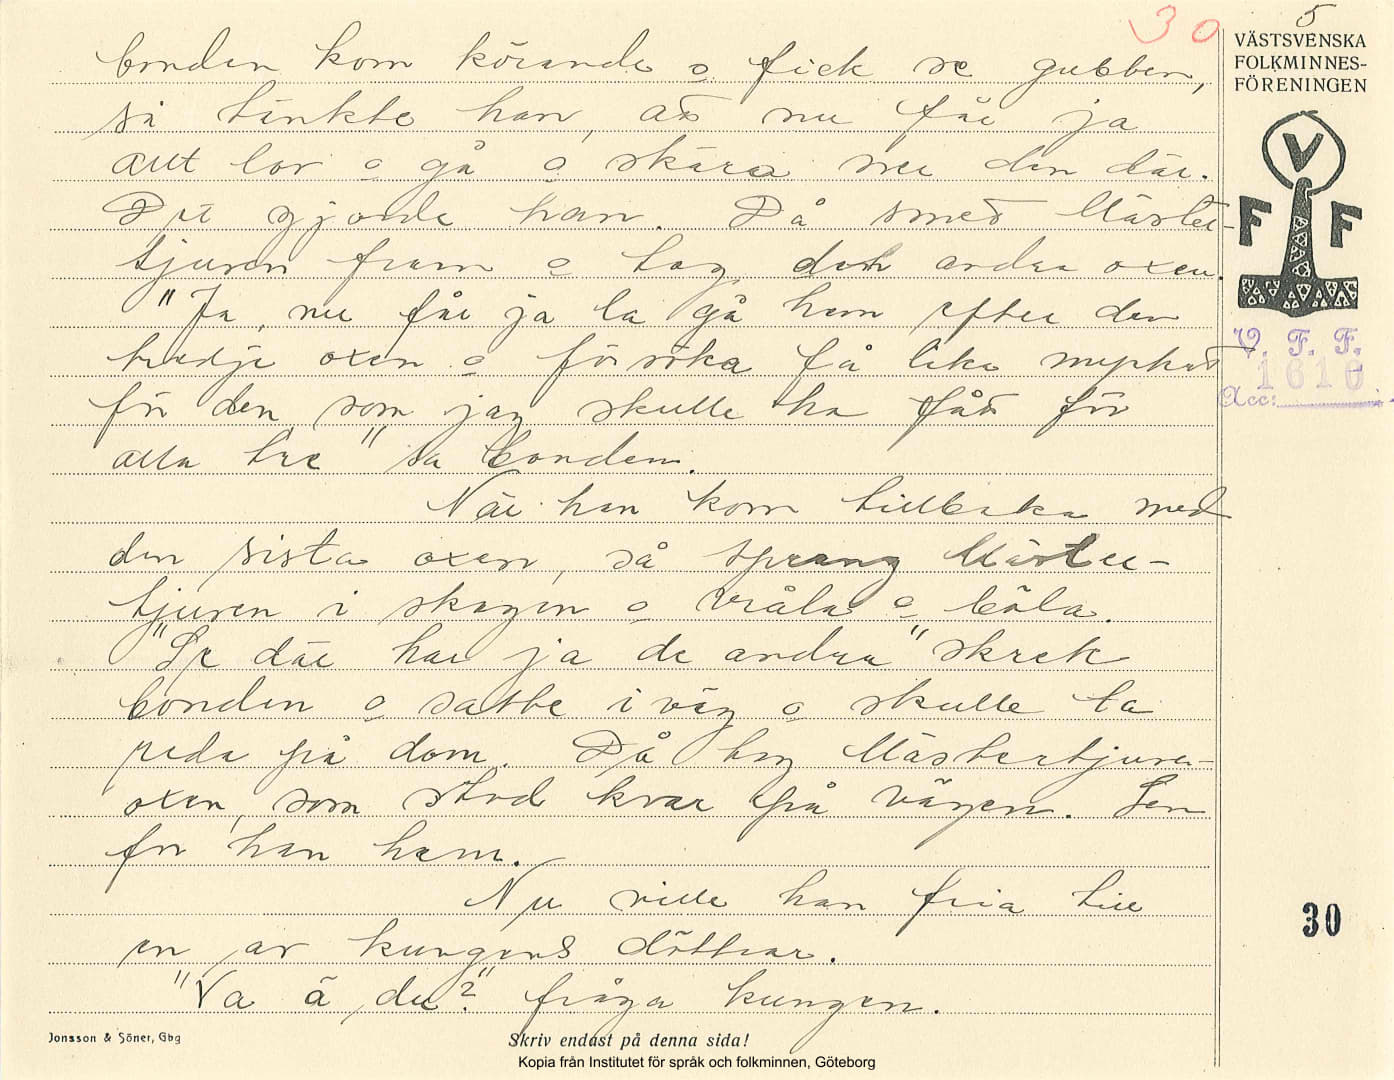 30
5
VÄSTSVENSKA
FOLKMINNES-
FÖRENINGEN
V
F F
V. F. F.
1616
Acc:
bonden kom körande o fick se gubben,
så tänkte han, att nu får ja
allt lov o gå o skära ner den där.
Det gjorde han. Då smet Mäster-
tjuven fram o tog den andra oxen.
"Ja, nu får ja la gå hem efter den
tredje oxen o försöka få lika mycket
för den, som jag skulle ha fått för
alla tre" sa bonden.
När han kom tillbaka med
den sista oxen, så sprang Mäster-
tjuven i skogen o vråla o böla.
"Se där har ja de andra" skrek
bonden o satte iväg o skulle ta
reda på dom. Då tog Mästertjuven
oxen, som stod kvar på vägen. Sen
for han hem.
Nu ville han fria till
en av kungens döttrar.
"Va ä du?" fråga kungen.
30
Jonsson & Söner, Gbg
Skriv endast på denna sida!
Kopia från Institutet för språk och folkminnen, Göteborg